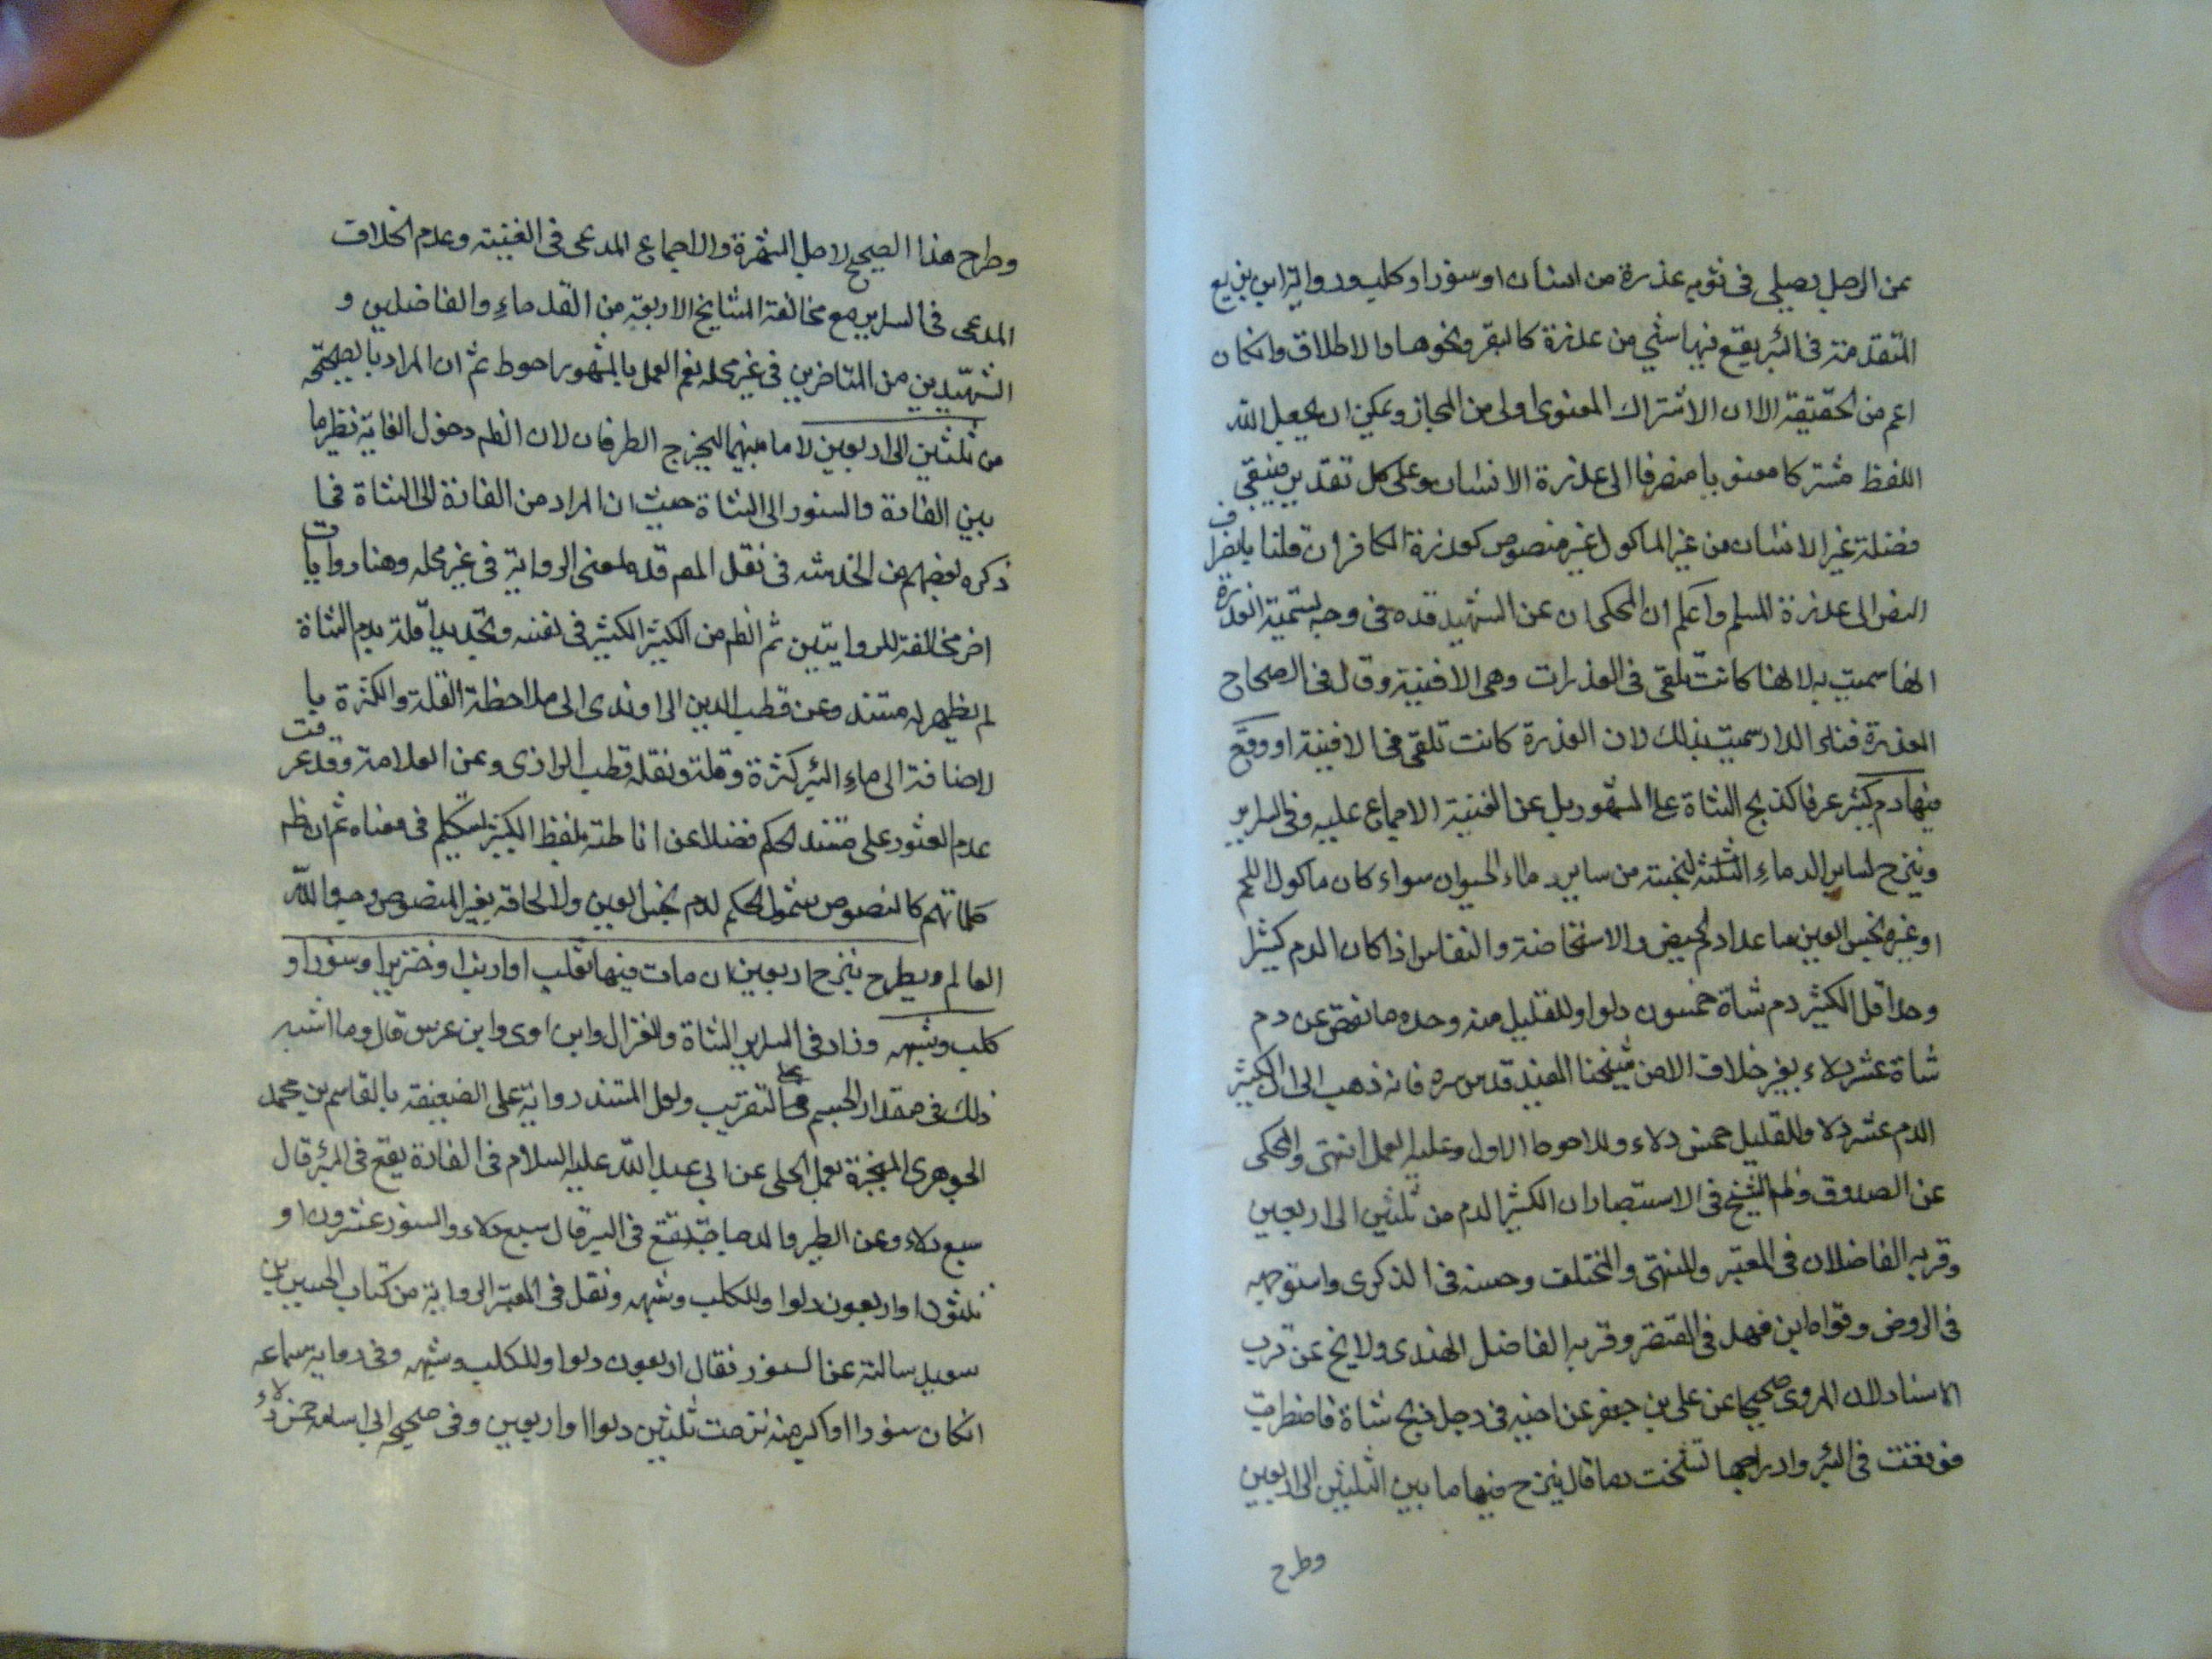 عن الرجل يصلى فى ثوبه عذرة من انسان او سنور او كلب ورواية ابن بزيع
المتقدمة فى البئر يقع فيها شئ من عذرة كالبقر ونحوها والاطلاق وانكان
اعم من الحقيقة الا ان الاشتراك المعنوى اولى من المجاز ويمكن ان يجعل الله
اللفظ مشتركا معنويا منصرفا الى عذرة الانسان وعلى كل تقدير فيبقى
فضلة غير الانسان من غير الماكول غير منصوص كعذرة الكافر ان قلنا بانصراف
النص الى عذرة المسلم واعلم ان المحكى ان عن الشهيد قده فى وجه تسمية العذرة
انها سميت به لانها كانت تلقى فى العذرات وهى الافنية وقال فى الصحاح
العذرة فناء الدار سميت بذلك لان العذرة كانت تلقى فى الافنية او وقع
فيها دم كثير عرفا كذبح الشاة على المشهور بل عن الغنية الاجماع عليه وفى السراير
وينزح لساير الدماء الثلثة النجسة من ساير دماء الحيوان سواء كان ماكول اللحم
او غيره نجس العين ما عدا دم الحيض والاستحاضة والنفاس اذا كان الدم كثيرا
وحد اقل الكثير دم شاة خمسون دلوا وللقليل منه وحده ما نقص عن دم
شاة عشر دلاء بغير خلاف الا من شيخنا المفيد قدس سره فانه ذهب الى ان لكثير
الدم عشر دلاء وللقليل خمس دلاء وللاحوط الاول وعليه العمل انتهى والمحكى
عن الصدوق وظم الشيخ فى الاستبصار ان الكثير الدم من ثلثين الى اربعين
وقربه الفاضلان فى المعتبر والمنتهى والمختلف وحسنه فى الذكرى واستوجهه
فى الروض وقواه ابن فهد فى المقتصر وقربه الفاضل الهندى ولا يخ عن قرب
الاسناد لان المروى صحيحا عن على بن جعفر عن اخيه فى رجل ذبح شاة فاضطربت
فوقعت فى البئر واوداجها تشخب دما قال ينزح منها ما بين الثلثين الى اربعين
وطرح
وطرح هذا الصحيح لاجل الشهرة والاجماع المدعى فى الغنية وعدم الخلاف
المدعى فى السراير مع مخالفة المشايخ الاربعة من القدماء والفاضلين و
الشهيدين من المتاخرين فى غير محله نعم العمل بالمشهور احوط ثم ان المراد بالصحيحة
من ثلثين الى اربعين لا ما بينهما ليخرج الطرفان لان الظم دخول الغاية نظير ما
بين الفارة والسنور الى الشاة حيث ان المراد من الفارة الى الشاة فما
ذكره بعضهم من الخدشه فى نقل المص قده لمعنى الرواية فى غير محله وهنا روايات
اخر مخالفة للروايتين ثم الظم من الكثير الكثير فى نفسه وتحديد اقله بدم الشاة
لم يظهر له مستند وعن قطب الدين الراوندى الى ملاحظة القلة والكثرة با
لاضافة الى ماء البئر كثرة وقلة ونقله قطب الرازى وعن العلامة وقد عرفت
عدم العثور على مستند الحكم فضلا عن اناطته بلفظ الكثير ليتكلم فى معناه ثم ان ظم
كلماتهم كالنصوص شمول الحكم لدم نجس العين ولالحاقه بغير المنصوص وجه والله
العالم ويطرح بنزح اربعين ان مات فيها ثعلب او ارنب او خنزير او سنور او
كلب وشبهه وزاد فى السراير الشاة والغزال وابن اوى وابن عرس قال وما اشبه
ذلك فى مقدار الجسم على التقريب ولعل المستند رواية على الضعيفة بالقاسم بن محمد
الجوهرى المنجبرة بعمل الجل عن ابى عبد الله عليه السلام فى الفارة يقع فى البئر قال
سبع دلاء وعن الطير والدجاجة تقع فى البئر قال سبع دلاء والسنور عشرون او
ثلثون او اربعون دلوا والكلب وشبهه ونقل فى المعتبر الرواية من كتاب الحسين بن
سعيد سالته عن السنور فقال اربعون دلوا وللكلب وشبهه وفى رواية سماعه
انكان سنورا او اكبر منه نزحت ثلثين دلوا او اربعين وفى صحيحه ابى اسامه خمس دلاء